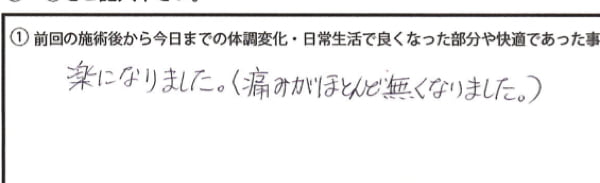 ① 前回の施術後から今日までの体調変化・日常生活で良くなった部分や快適であった事
楽になりました。(痛みがほとんど無くなりました。)